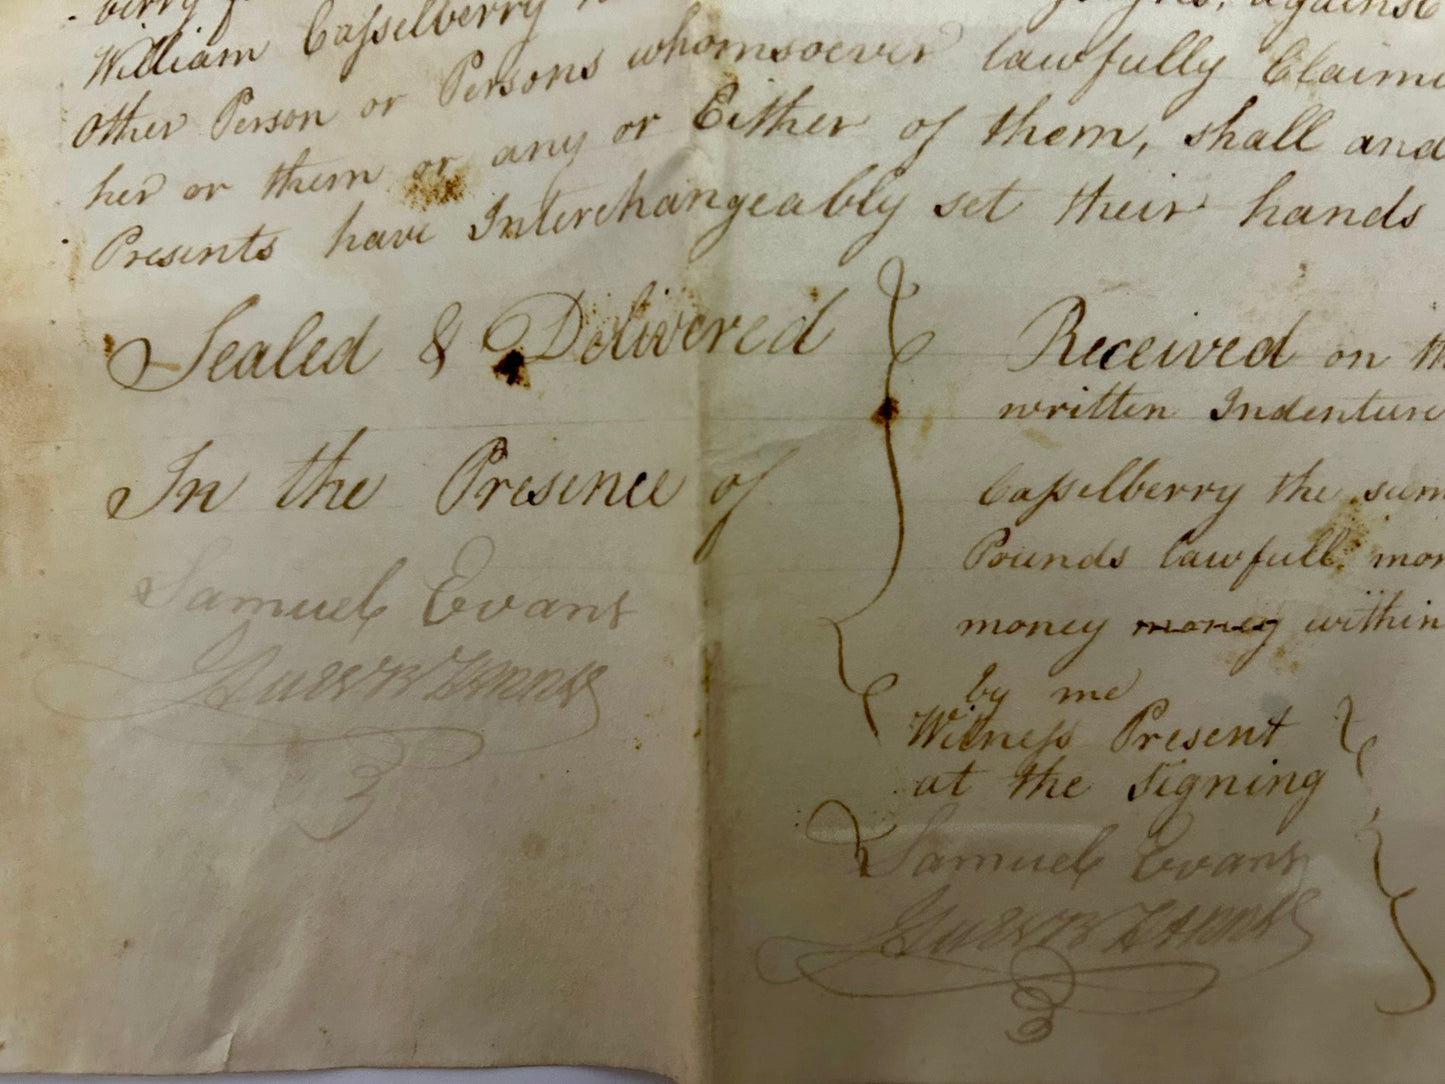 William Caſselberry
Other Person or Persons whomsoever lawfully Claim
her or them or any or Either of them, shall and
Presents have Interchangeably set their hands
Sealed & Delivered
In the Presence of
Samuel Evans
Received on th
written Indenture
Caſselberry the sum
Pounds lawfull mon
money money within
by me
Witneſs Present
at the Signing
Samuel Evans